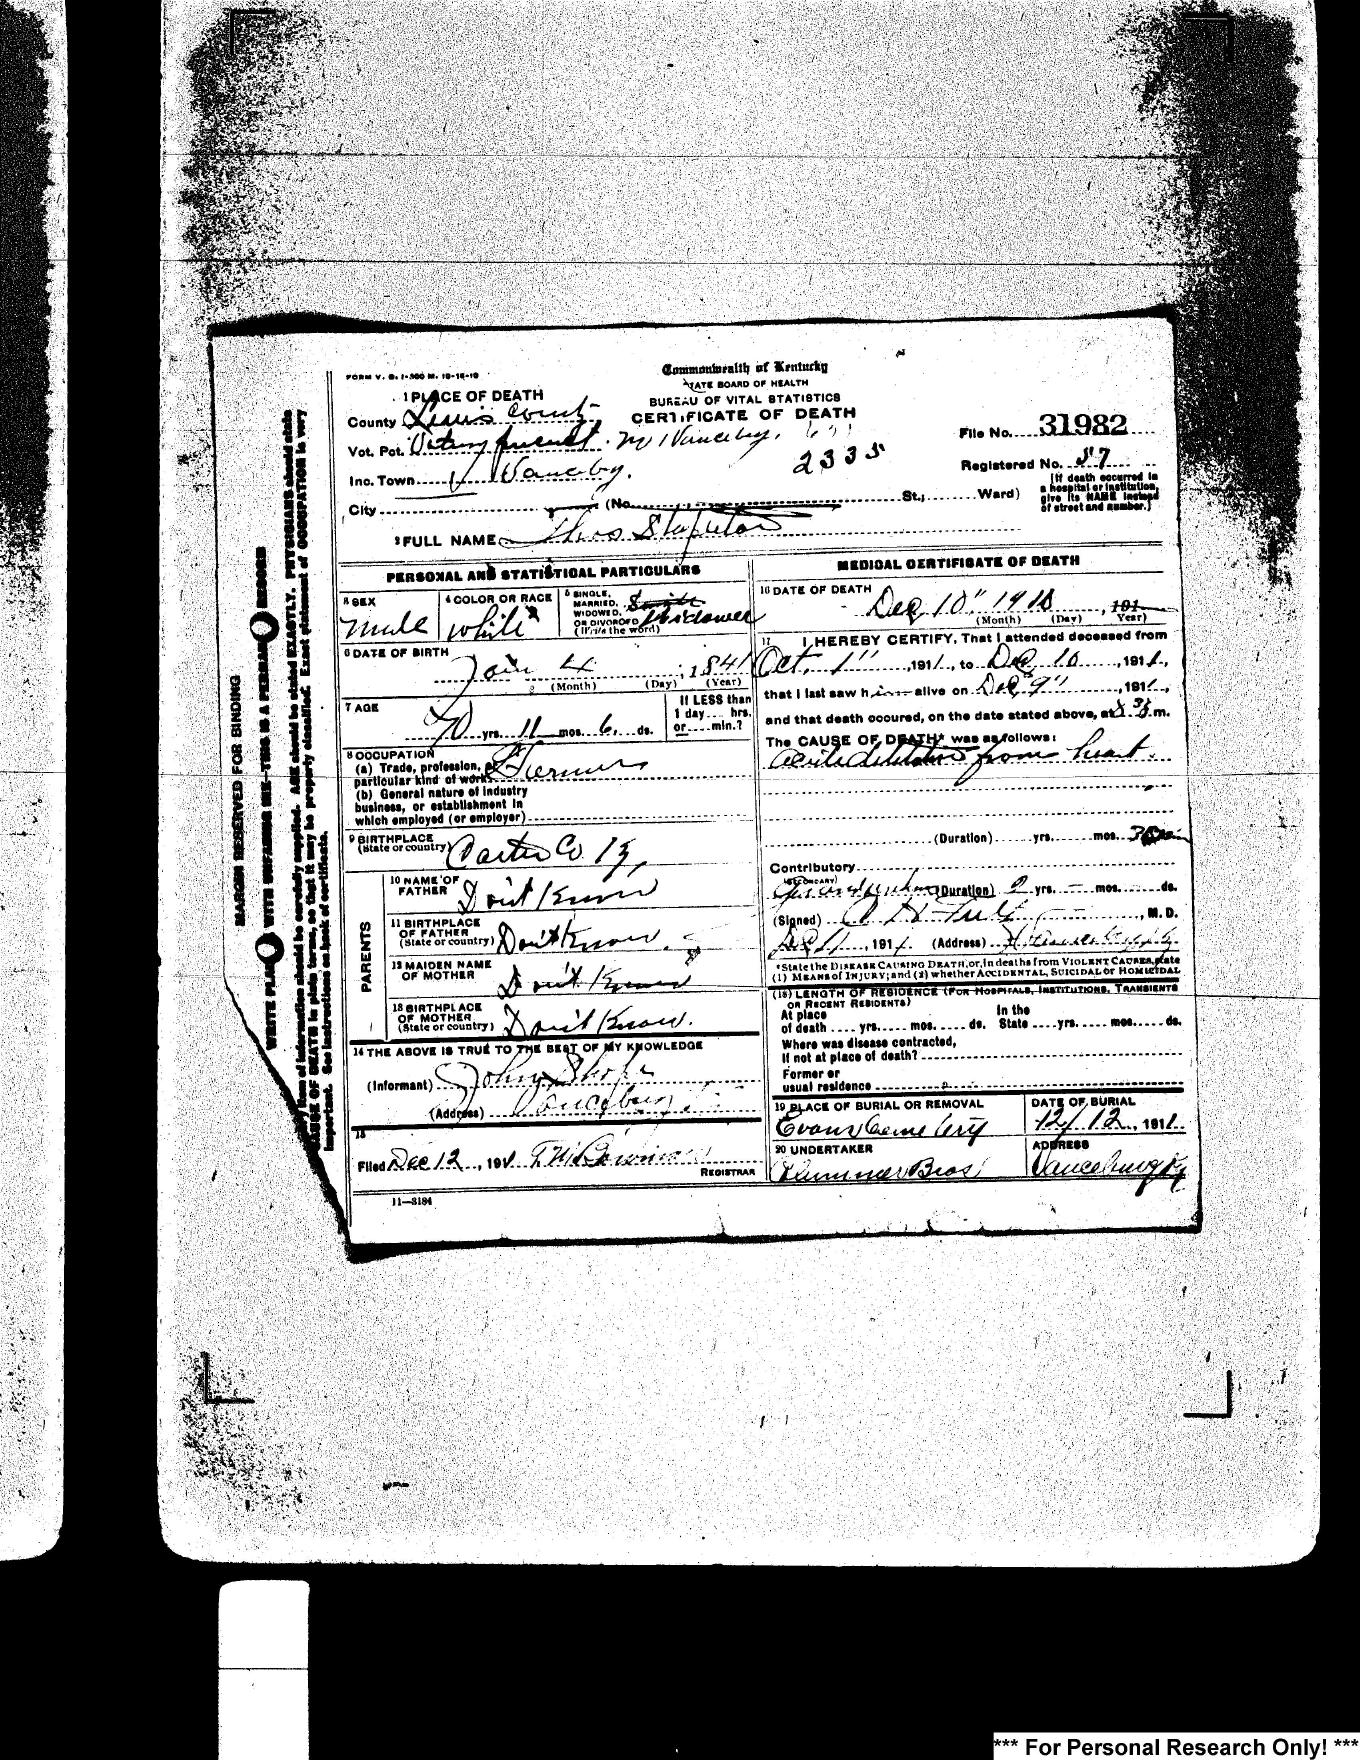 FORM V. S. 1-500 M. 10-16-10
Commonwealth of Kentucky
STATE BOARD OF HEALTH
BUREAU OF VITAL STATISTICS
CERTIFICATE OF DEATH
1 PLACE OF DEATH
County Lewis County
Vot. Pct. Voting precinct. No 1 Vanceby.
Inc. Town Vanceby.
2335
File No. 31982
Registered No. 57
[If death occurred in a hospital or institution, give its NAME instead of street and number.]
City (No. St.; Ward)
2 FULL NAME Thos Stapleton
PERSONAL AND STATISTICAL PARTICULARS
3 SEX
Male
4 COLOR OR RACE
White
5 SINGLE, MARRIED, WIDOWED, OR DIVORCED (Write the word)
Widower
6 DATE OF BIRTH
Jan 4, 1841
(Month) (Day) (Year)
7 AGE
70 yrs. 11 mos. 6 ds.
If LESS than 1 day hrs. or min.?
8 OCCUPATION
(a) Trade, profession, or particular kind of work Farmer
(b) General nature of industry business, or establishment in which employed (or employer)
9 BIRTHPLACE (State or country) Carter Co Ky,
PARENTS
10 NAME OF FATHER Don't Know
11 BIRTHPLACE OF FATHER (State or country) Don't Know.
12 MAIDEN NAME OF MOTHER Don't Know
13 BIRTHPLACE OF MOTHER (State or country) Don't Know.
14 THE ABOVE IS TRUE TO THE BEST OF MY KNOWLEDGE
(Informant) John
(Address) Vanceburg
15
Filed Dec 12, 191
REGISTRAR
11—3184
MEDICAL CERTIFICATE OF DEATH
16 DATE OF DEATH
Dec 10" 191
(Month) (Day) Year)
17 I HEREBY CERTIFY, That I attended deceased from
Oct. 1", 1911, to Dec 10, 1911,
that I last saw him alive on Dec 9", 1911,
and that death occured, on the date stated above, at 8 m.
The CAUSE OF DEATH* was as follows:
from heart.
(Duration) yrs. mos.
Contributory
(SECONDARY)
(Duration) 2 yrs. – mos. ds.
(Signed) , M. D.
Dec 11, 1911 (Address) Vanceburg Ky
*State the DISEASE CAUSING DEATH, or, in deaths from VIOLENT CAUSES, state (1) MEANS of INJURY; and (2) whether ACCIDENTAL, SUICIDAL or HOMICIDAL
(18) LENGTH OF RESIDENCE (FOR HOSPITALS, INSTITUTIONS, TRANSIENTS OR RECENT RESIDENTS)
At place of death yrs. mos. ds. In the State yrs. mos. ds.
Where was disease contracted, If not at place of death?
Former or usual residence
19 PLACE OF BURIAL OR REMOVAL
Evans Cemetery
DATE OF BURIAL
12/12, 1911
20 UNDERTAKER
Plummer Bros
ADDRESS
Vanceburg Ky
MARGIN RESERVED FOR BINDING
WRITE PLAINLY WITH UNFADING INK—THIS IS A PERMANENT RECORD
Every item of information should be carefully supplied. AGE should be stated EXACTLY. PHYSICIANS should state
CAUSE OF DEATH in plain terms, so that it may be properly classified. Exact statement of OCCUPATION is very
important. See instructions on back of certificate.
*** For Personal Research Only! ***